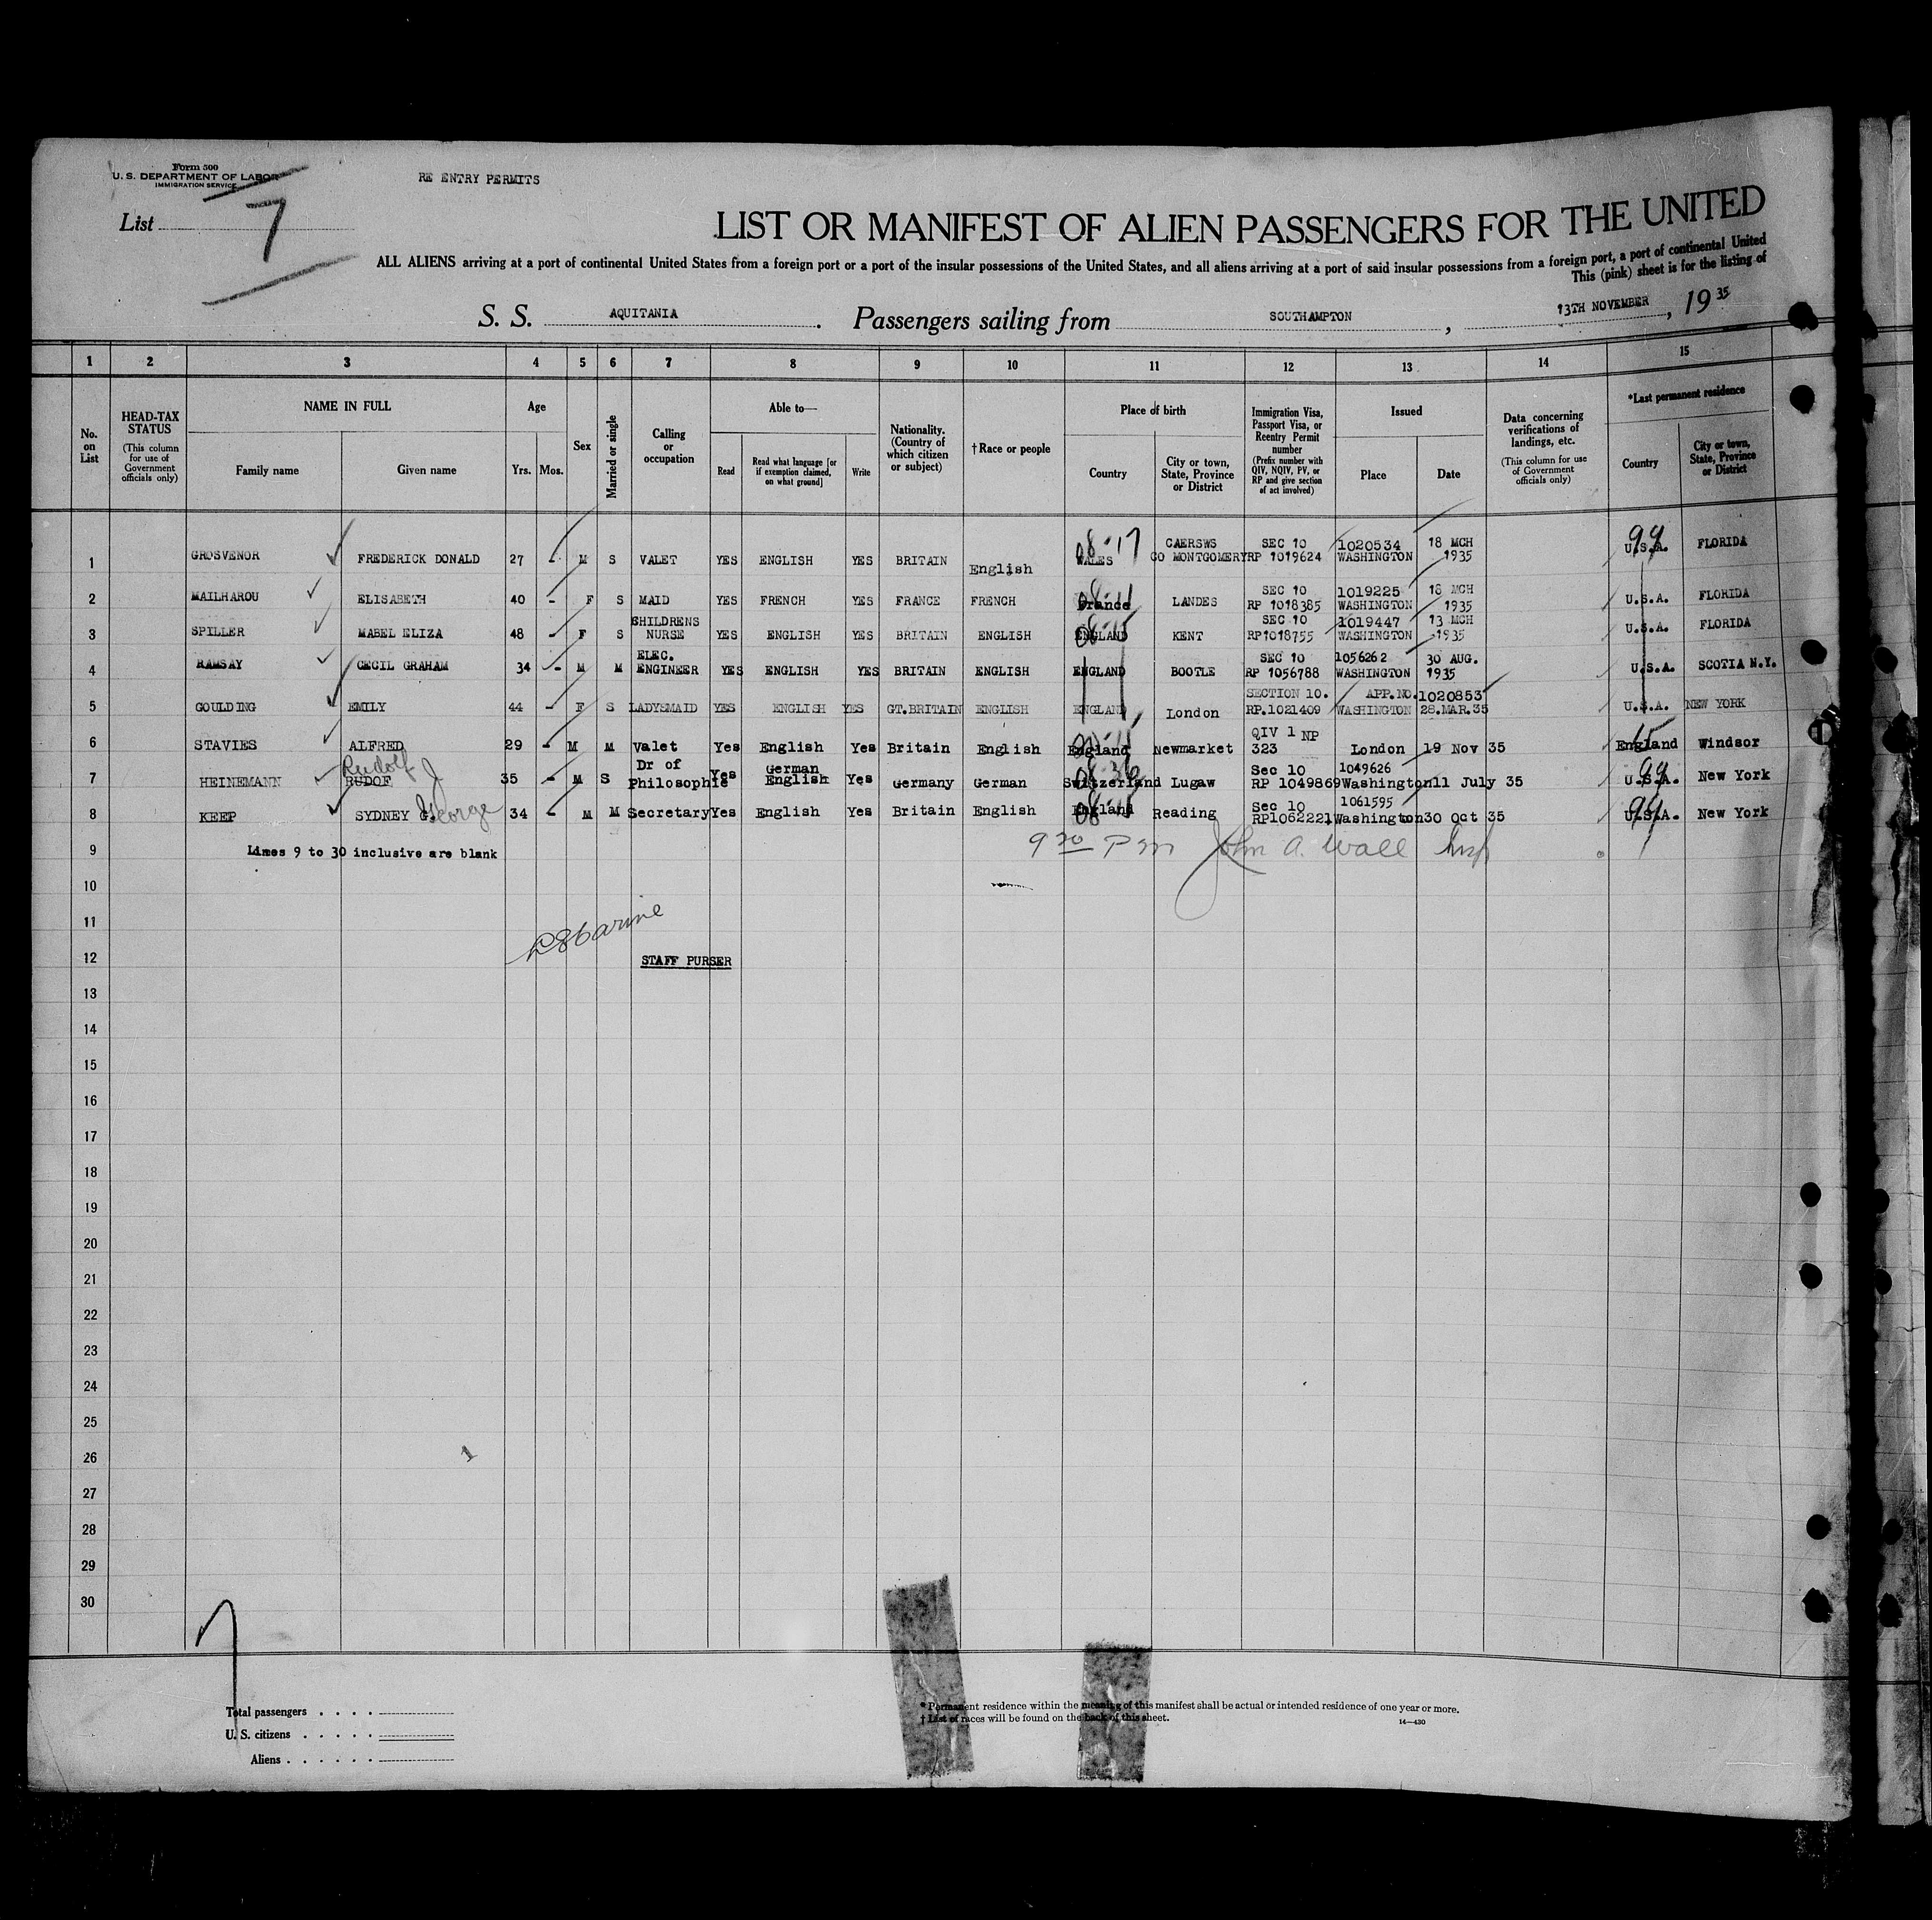 Form 500
U. S. DEPARTMENT OF LABOR
IMMIGRATION SERVICE
RE ENTRY PERMITS
List 7
LIST OR MANIFEST OF ALIEN PASSENGERS FOR THE UNITED
ALL ALIENS arriving at a port of continental United States from a foreign port or a port of the insular possessions of the United States, and all aliens arriving at a port of said insular possessions from a foreign port, a port of continental United
This (pink) sheet is for the listing of
S. S. AQUITANIA. Passengers sailing from SOUTHAMPTON, 13TH NOVEMBER, 1935
1 2 3 4 5 6 7 8 9 10 11 12 13 14 15
No. on List
HEAD-TAX STATUS (This column for use of Government officials only)
NAME IN FULL Family name Given name
Age Yrs. Mos.
Sex
Married or single
Calling or occupation
Able to— Read Read what language [or if exemption claimed, on what ground] Write
Nationality. (Country of which citizen or subject)
†Race or people
Place of birth Country City or town, State, Province or District
Immigration Visa, Passport Visa, or Reentry Permit number (Prefix number with QIV, NQIV, PV, or RP and give section of act involved)
Issued Place Date
Data concerning verifications of landings, etc. (This column for use of Government officials only)
*Last permanent residence Country City or town, State, Province or District
1 GROSVENOR FREDERICK DONALD 27 - M S VALET YES ENGLISH YES BRITAIN English 08-17 WALES CAERSWS CO MONTGOMERY SEC 10 RP 1019624 1020534 WASHINGTON 18 MCH 1935 99 U.S.A. FLORIDA
2 MAILHAROU ELISABETH 40 - F S MAID YES FRENCH YES FRANCE FRENCH France LANDES SEC 10 RP 1018385 1019225 WASHINGTON 18 MCH 1935 U.S.A. FLORIDA
3 SPILLER MABEL ELIZA 48 - F S CHILDRENS NURSE YES ENGLISH YES BRITAIN ENGLISH ENGLAND KENT SEC 10 RP1018755 1019447 WASHINGTON 13 MCH 1935 U.S.A. FLORIDA
4 RAMSAY CECIL GRAHAM 34 - M M ELEC. ENGINEER YES ENGLISH YES BRITAIN ENGLISH ENGLAND BOOTLE SEC 10 RP 1056788 1056262 WASHINGTON 30 AUG. 1935 U.S.A. SCOTIA N.Y.
5 GOULDING EMILY 44 - F S LADYSMAID YES ENGLISH YES GT.BRITAIN ENGLISH ENGLAND London SECTION 10. RP.1021409 APP.NO.1020853 WASHINGTON 28.MAR.35 U.S.A. NEW YORK
6 STAVIES ALFRED 29 - M M Valet Yes English Yes Britain English England Newmarket QIV 1 NP 323 London 19 Nov 35 England Windsor
7 HEINEMANN RUDOF Rudolf J 35 - M S Dr of Philosophie Yes German English Yes Germany German 08-36 Switzerland Lugaw Sec 10 RP 1049869 1049626 Washington 11 July 35 99 U.S.A. New York
8 KEEP SYDNEY George 34 - M M Secretary Yes English Yes Britain English England Reading Sec 10 RP1062221 1061595 Washington 30 Oct 35 99 U.S.A. New York
9 Limes 9 to 30 inclusive are blank 9 30 Pm John A. Wall Insp
10
11
12 STAFF PURSER
13
14
15
16
17
18
19
20
21
22
23
24
25
26
27
28
29
30
Total passengers . . . .
U. S. citizens . . . . .
Aliens . . . . . .
* Permanent residence within the meaning of this manifest shall be actual or intended residence of one year or more.
† List of races will be found on the back of this sheet.
14—430